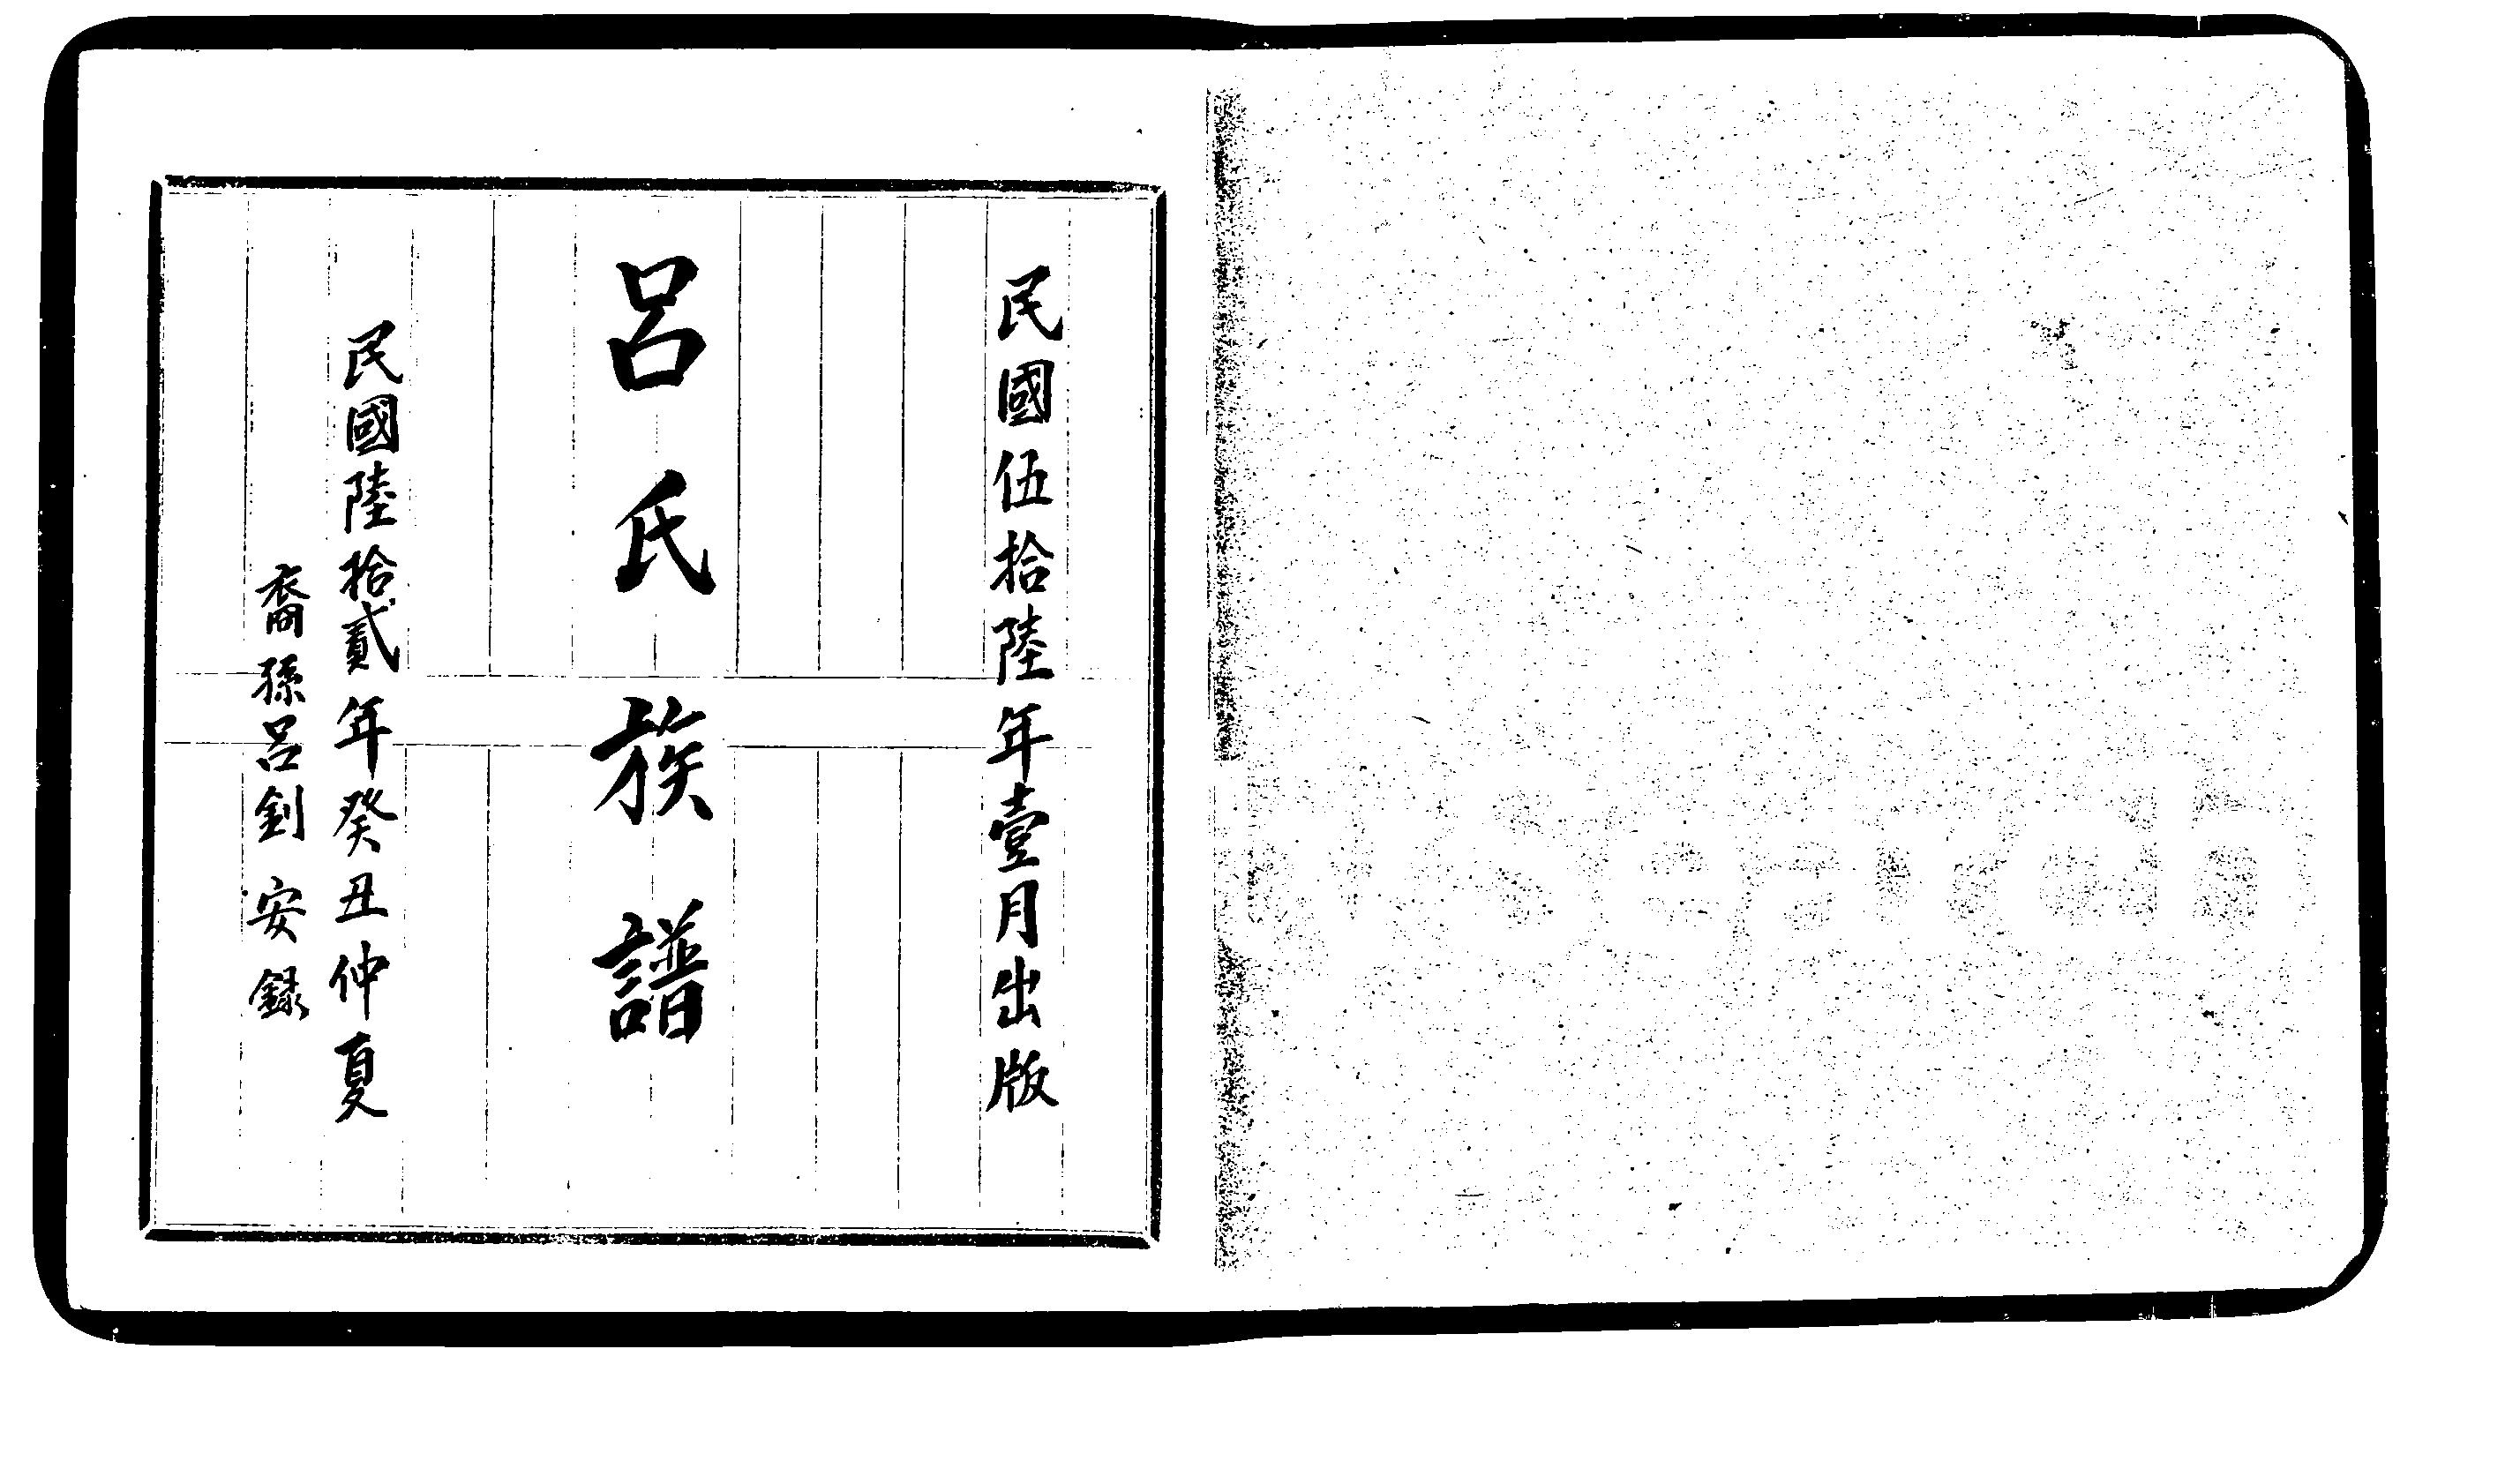 民國伍拾陸年壹月出版
呂氏族譜
民國陸拾貳年癸丑仲夏
裔孫呂釗安録